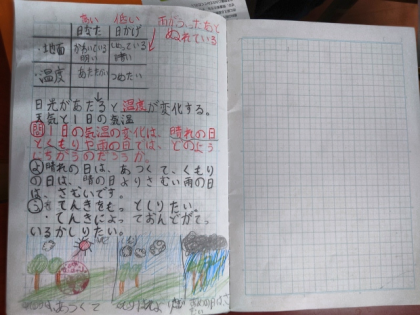 高い 低い
日なた 日かげ
雨がふったあと
ぬれている
・地面 かわいている しめっている
明るい 暗い
・温度 あたたかい つめたい
日光があたると温度が変化する。
天気と1日の気温
問1日の気温の変化は、晴れの日
とくもりや雨の日では、どのよう
にちがうのだろうか。
よ晴れの日は、あつくて、くもり
の日は、晴の日よりさむい雨の日
は、さむいです。
・てんきをもっとしりたい。
・てんきによっておんどがてっ
いるかしりたい。
あつくて